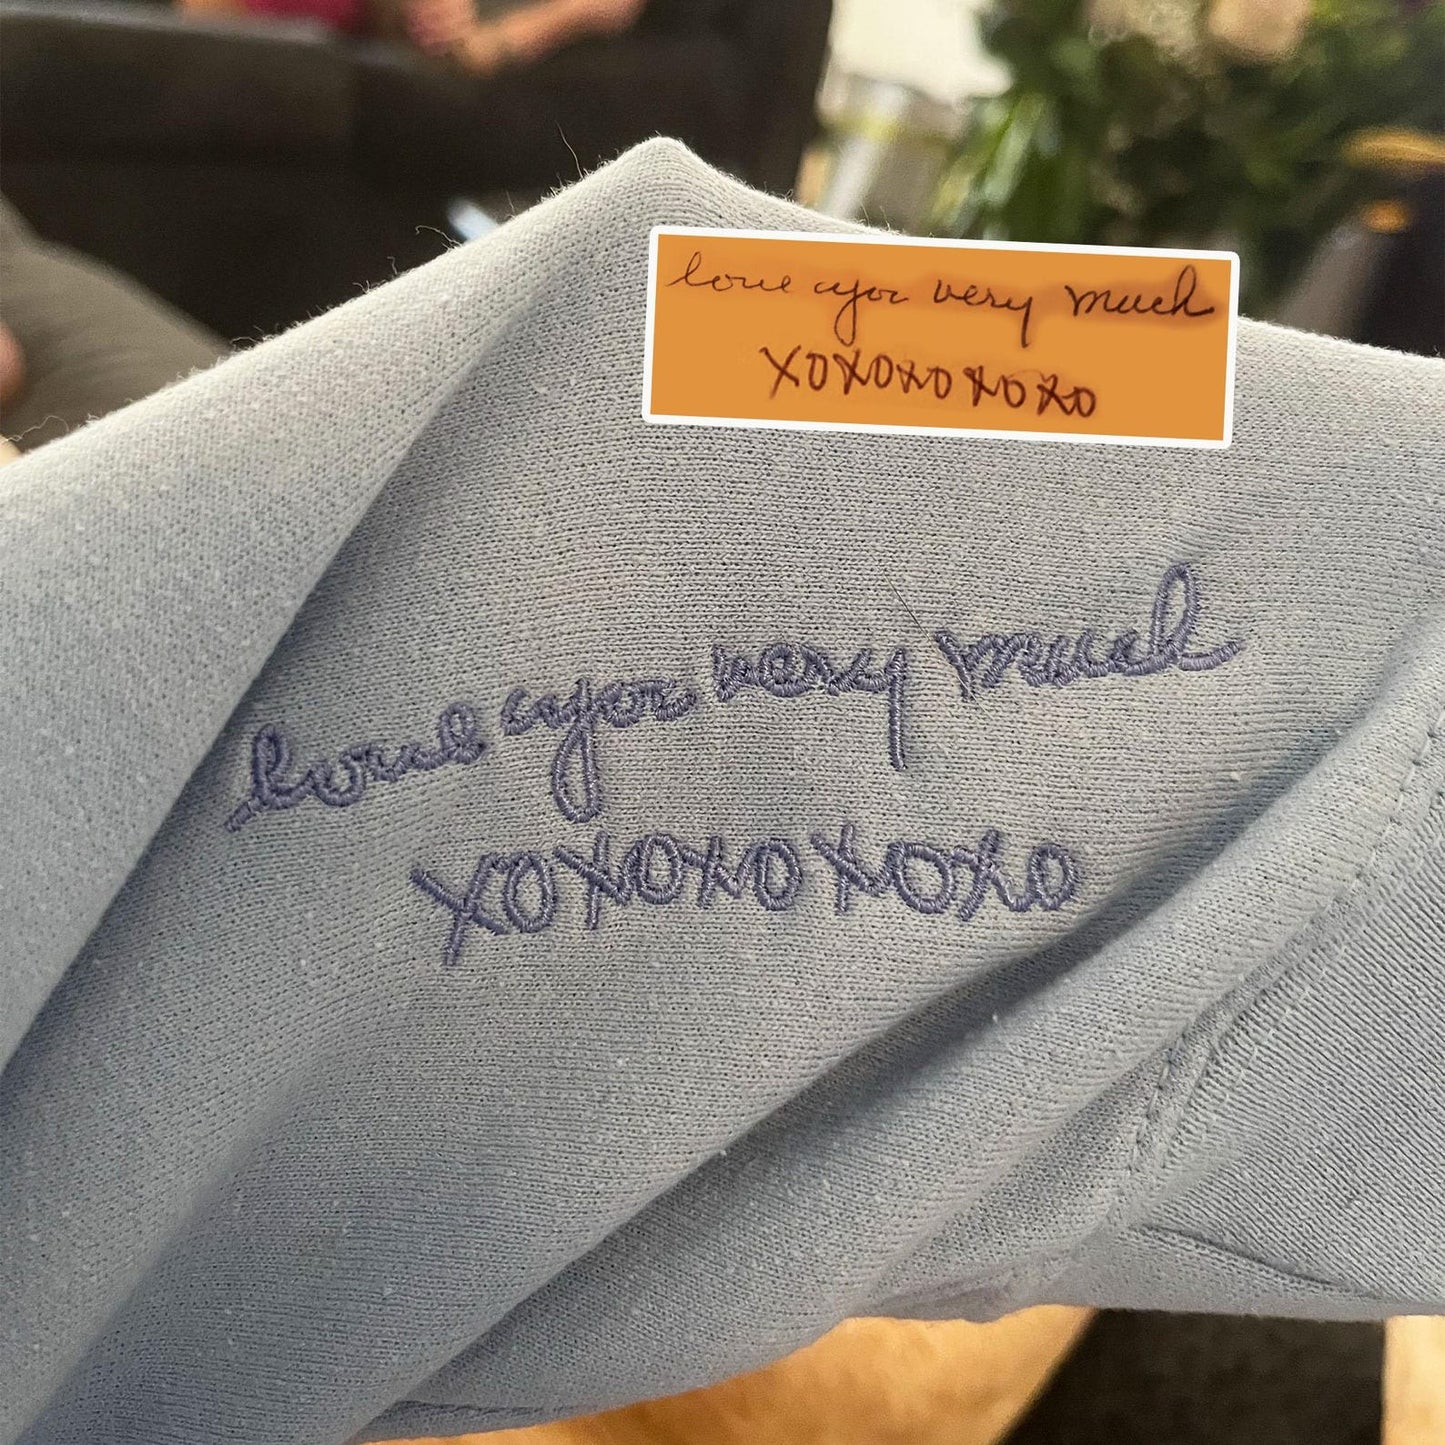 love you very much
XOXOXOXOXO
love you very much
XOXOXOXOXO